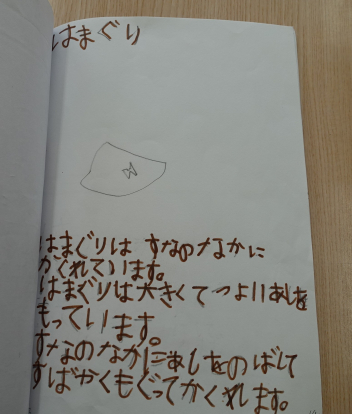 はまぐり
はまぐりは すなのなかに
かくれています。
はまぐりは大きくてつよいあしを
もっています。
すなのなかにあしをのばして
すばやくもぐってかくれます。